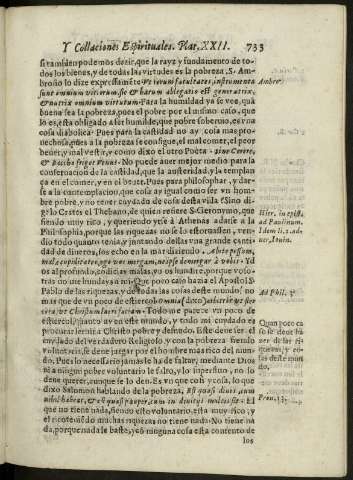 Y Collaciones Espirituales. Plat. XXII. 733
si tambien podemos dezir, que la rayz y fundamento de to-
dos los bienes, y de todas las virtudes es la pobreza. S. Am-
brosio lo dize expressamente
sunt omnium vitiorum, sic & harum ablegatio est generatrix,
& nutrix omnium virtutum. Para la humildad ya se vee, quā
buena sea la pobreza, pues el pobre por el mismo caso, que
lo es, está obligado a ser humilde, que pobre soberuio, es vna
cosa diabolica: Pues para la castidad no ay cosa mas pro-
uechosa, pues a la pobreza se consigue, el mal comer, el peor
beuer, y mal vestir, y como dixo el otro Poëta: sine Cerere,
& Baccho friget Venus. No puede auer mejor medio para la
conseruacion de la castidad, que la austeridad, y la templan
ça en el comer, y en el beuer. Pues para philosophar, y dar-
se a la contemplacion, que cosa ay igual como ser vn hom-
bre pobre, y no tener cuydado de cosa desta vida? Sino di-
galo Crates el Thebano, de quien refiere S. Gieronymo, que
siendo muy rico, y queriendo yrse à Athenas a darse a la
Philosophia, porque las riquezas no se lo estoruassen, ven-
dio todo quanto tenia, y juntando dellas vna grande canti-
dad de dineros, los echo en la mar diziendo. Abite pessum,
malæ cupiditates, ego vos mergam, ne ipse demergar à vobis. Yd
os al profundo, codicias malas, yo os hundire, porque voso-
tras no me hundays a mi. Que poco caso hazia el Apostol S.
Pablo de las riquezas, y de todas las cosas deste mundo? no
mas que de vn poco de estiercol: omnia (dize)
cora, vt Christum lucrifaciam. Todo me parece vn poco de
estiercol, quanto ay en este mundo, y todo mi cuydado es
procurar seruir a Christo pobre y desnudo. Este deue ser el
cuydado del verdadero Religioso, y con la pobreza siendo
voluntaria, se deue juzgar por el hombre mas rico del mun-
do. Pues lo necessario jamas le ha de faltar, mediante Dios,
ni a ningun pobre voluntario le falto, y lo superfluo, no lo
deue querer, aunque se lo den. Es vn que cosi y cosa, lo que
dixo Salomon hablando de la pobreza, Est quasi diues, cum
nihil habeat, & est quasi pauper, cum in diuitijs multis sit: El
que no tiene nada, siendo este voluntario, està muy rico, y
el rico teniendo muchas riquezas no tiene nada: No tiene na
da, porque nada le basta, y cō ninguna cosa esta contento de
los
Ambro.
Hier. in epist.
ad Paulinum.
Idem li. 2. ad-
uer. Iouin.
Ad Phil. 3
Quan poco ca
so se deue ha
zer de las ri
quezas, y co-
sas deste mun
do.
Prou. 13.